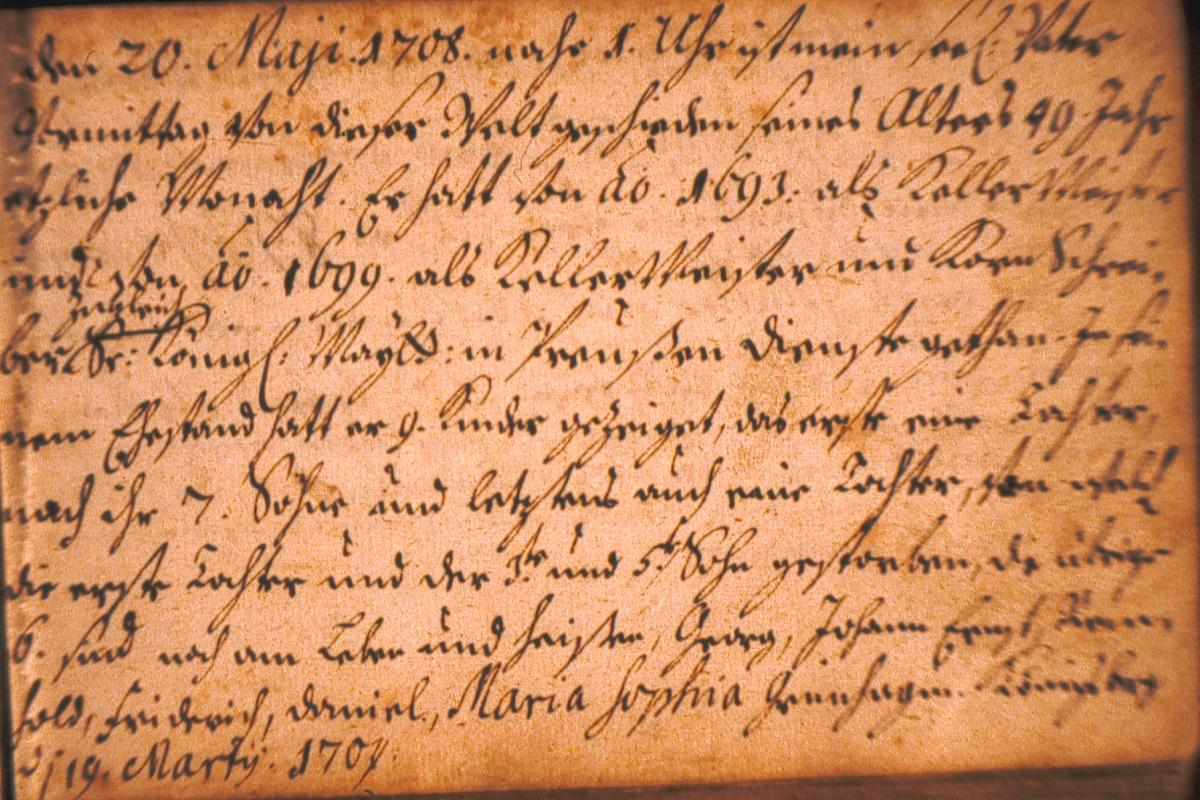 den 20. Maji. 1708. nachts 1. Uhr ist mein seel: Vater
Vormittag von dieser Welt geschieden seines Alters 49 Jahr
etzliche Monaht. Er hatt von ao. 1693. als Keller Meister
und von ao. 1699. als Keller Meister und Korn Schrei-
zugleich
ber Sr: Königl: Mayt: in Preußen Dienste gethan. In sei-
nem Ehestand hatt er 9. Kinder gezeiget, das erste eine Tochter,
nach ihr 7. Söhne und letztens auch eine Tochter, von
die erste Tochter und der 3te und 5te Sohn gestorben, die übrige
6. sind noch am Leben und heißen, Georg, Johann Ernst, Rein-
hold, Friderich, Daniel, Maria Sophia
19. Marty. 1707.